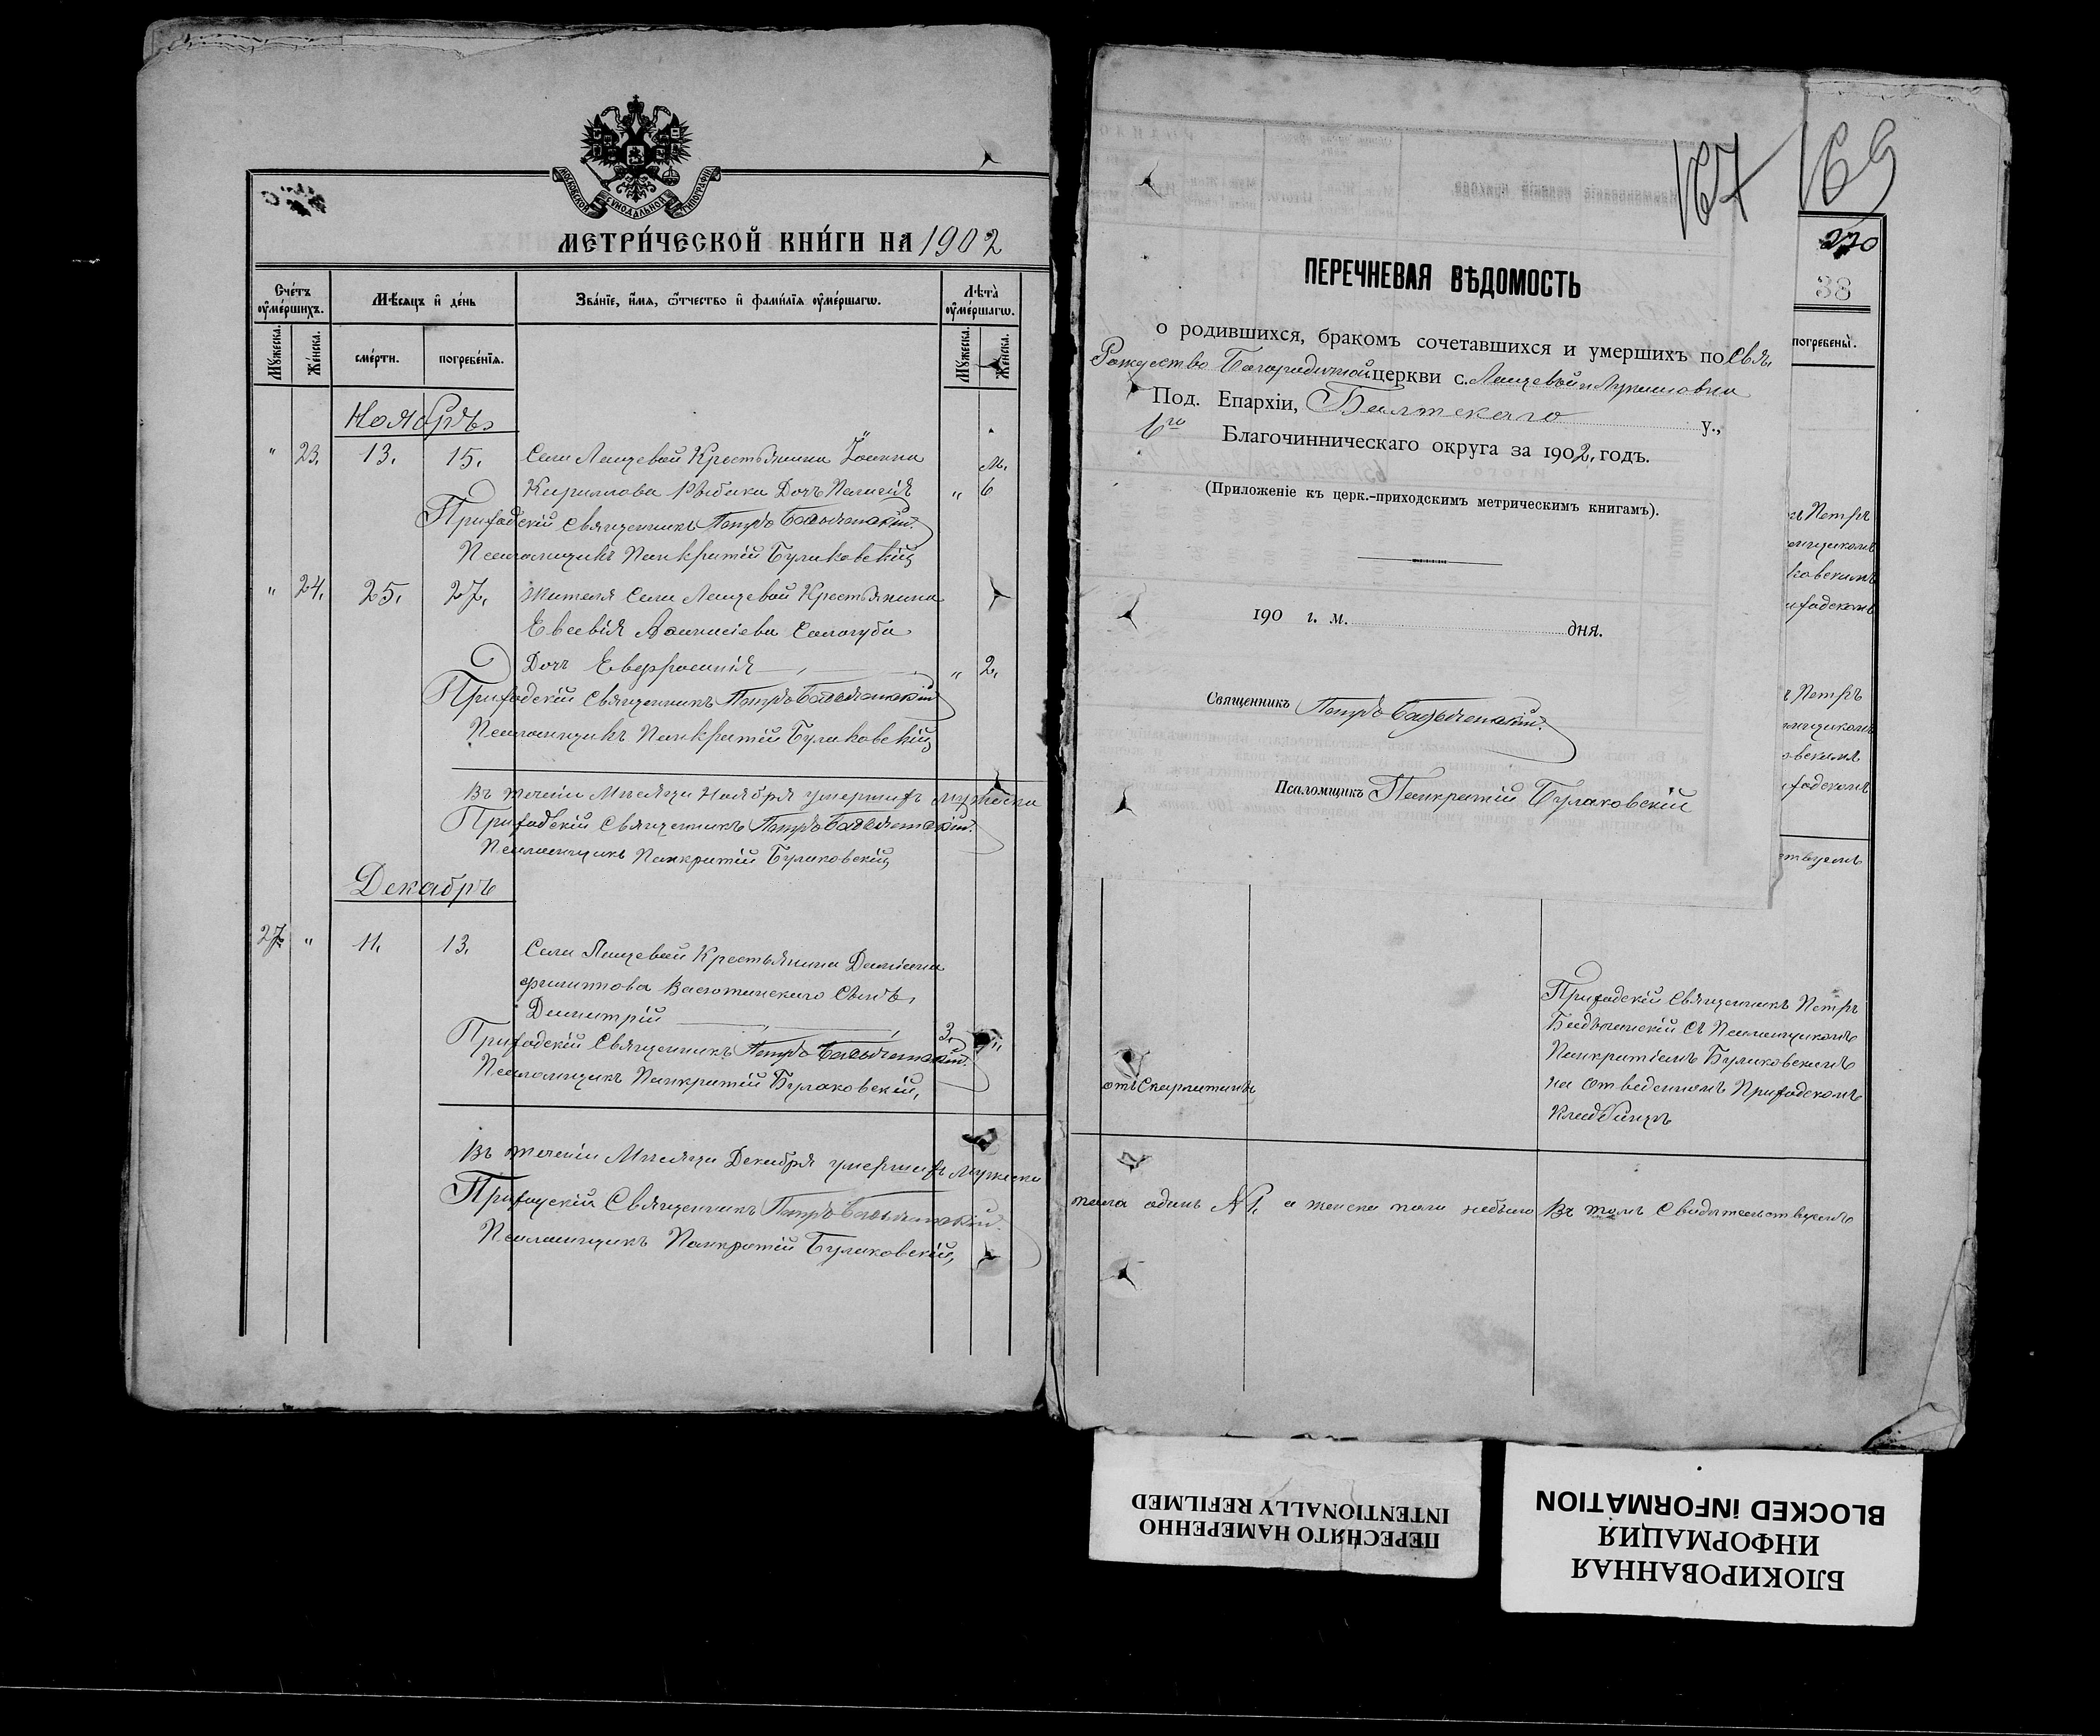 МОСКОВСКОЙ СѴНОДАЛЬНОЙ ТИПОГРАФІИ
МЕТРИ́ЧЕСКОЙ КНИ́ГИ НА 1902
Сче́тъ ᲂу҆ме́ршихъ.
Мѣ́сяцъ и҆ де́нь
Зва́нїе, и҆́мя, ѻ҆́тчество и҆ фами́лїя ᲂу҆ме́ршагѡ.
Лѣ́та ᲂу҆ме́ршагѡ.
Мꙋ́жеска.
Же́нска.
сме́рти.
погребе́нїѧ.
Мꙋ́жеска.
Же́нска.
Ноябрь
" 23. 13. 15. Села Лещевой Крестьянина Іоанна м.
Кирилова Рыбака Дочь Пелагія " 6
Приходскій Священникъ Петръ
Псаломщикъ Панкратій Булаковскій
" 24. 25. 27. Жителя Села Лещевой Крестьянина
Евсевія Сологуба
Дочь Евфросинія " 2.
Приходскій Священникъ Петръ
Псаломщикъ Панкратій Булаковскій
Въ теченіи Мѣсяца Ноября умершихъ мужеска
Приходскій Священникъ Петръ
Псаломщикъ Панкратій Булаковскій
Декабрь
27. " 11. 13. Села Лещевой Крестьянина Даміана
Филиппова Сынъ,
Димитрій 3. "
Приходскій Священникъ Петръ
Псаломщикъ Панкратій Булаковскій,
Въ теченіи Мѣсяца Декабря умершихъ мужеска
Приходскій Священникъ Петръ
Псаломщикъ Панкратій Булаковскій,
167
169
270
38
погребены̀.
ПЕРЕЧНЕВАЯ ВѢДОМОСТЬ
о родившихся, бракомъ сочетавшихся и умершихъ по Свя.
Рождество Богородичной церкви с. Лещевой
Под. Епархіи, Балтскаго у.,
6го Благочинническаго округа за 1902, годъ.
(Приложеніе къ церк.-приходскимъ метрическимъ книгамъ).
190 г. м. дня.
Священникъ Петръ
Псаломщикъ Панкратій Булаковскій
Петръ
омщикомъ
ковскимъ
иходскомъ
Петръ
омщикомъ
овскимъ
иходскомъ
ствуемъ
отъ Скарлатины
Приходскій Священникъ Петръ
съ Псаломщикомъ
Панкратіемъ Булаковскимъ
на отведенномъ Приходскомъ
Кладбищѣ
пола одинъ № 1, а женска пола небыло Въ томъ Свидѣтельствуемъ
ПЕРЕСНЯТО НАМЕРЕННО
INTENTIONALLY REFILMED
БЛОКИРОВАННАЯ
ИНФОРМАЦИЯ
BLOCKED iNFORMATION